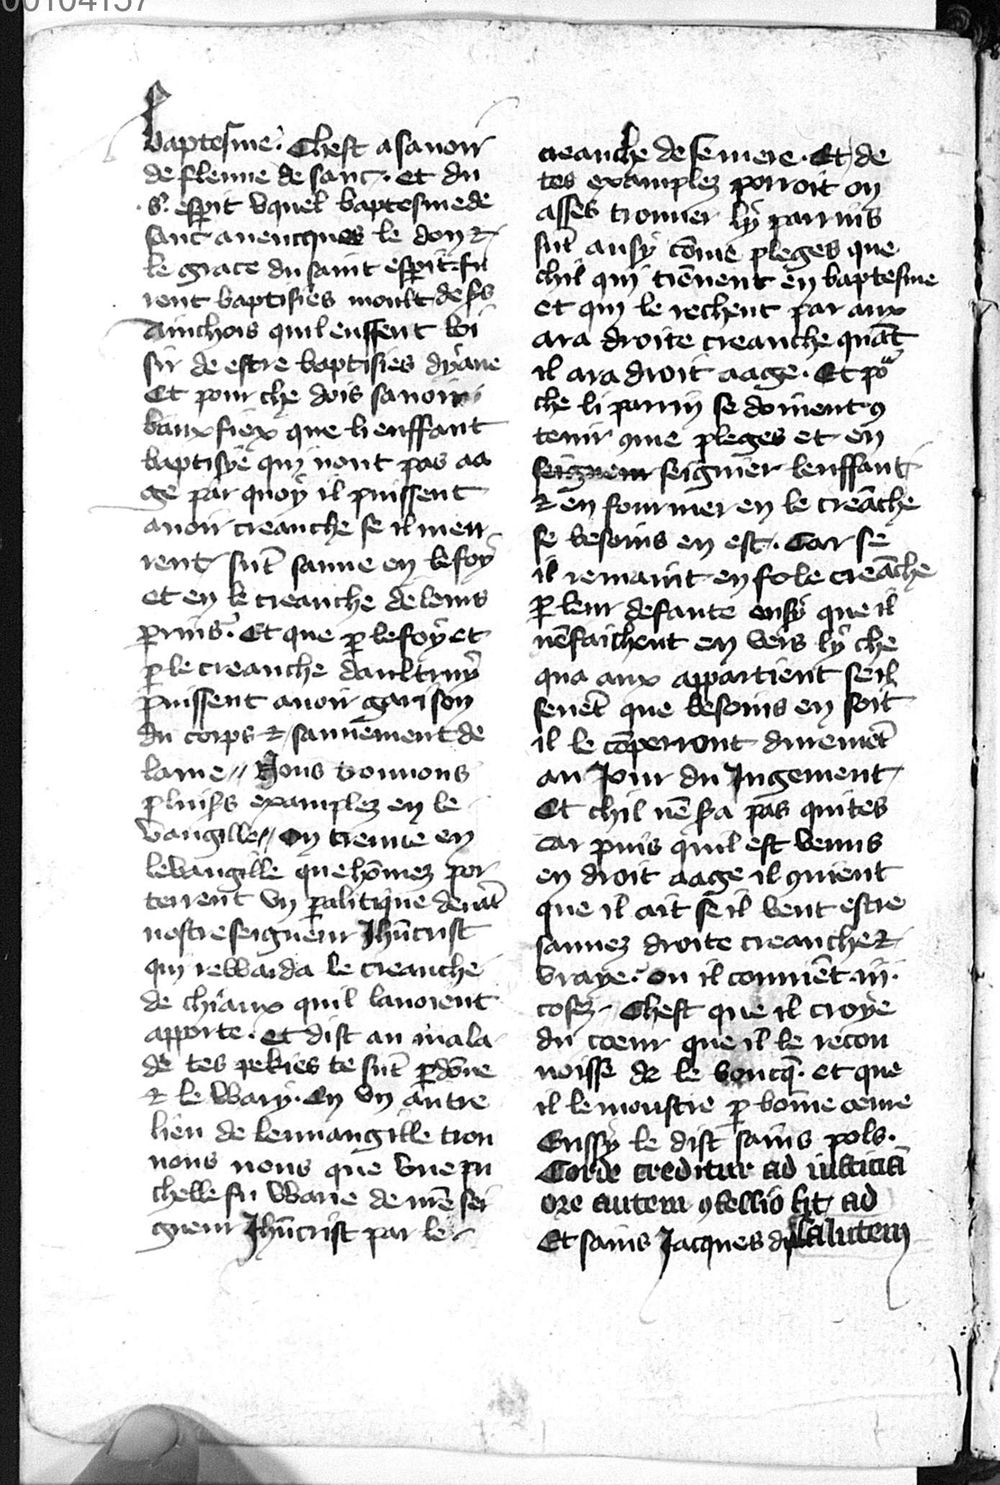 00104157
baptesme. Chest asauoir
de fleume de sanc. et du
s. esperit uquel baptesme de
sanc auencques le don &
le grace du saint esperit fu
rent baptisies moult de sˢ
Ainchois quil eussent loi
sir de estre baptisies dyaue
Et pour che dois sauoir
biaux fiex que li enffant
baptisye qui nont pas aa
ge par quoy il puissent
auoir creanche se il meu
rent sūt sauue en le foy
et en le creanche de leurs
ꝑrins. Et que ꝑ le foy et
ꝑ le creanche daultruy
puissent auoir garison
du corps & sauuement de
lame // Nous trouuons
pluisˢ examplez en le
vangille // on treuue en
leuangille que hōmez por
terent vn ꝑalitique deuāt
nostre seigneur Jhūcrist
qui rewarda le creanche
de chiaux quil lauoient
apporte. et dist au mala
de tes pekies te sūt ꝑdōne
& le wary. En vn autre
lieu de leuuangille trou
uons nous que vne pu
chelle fu warie de nrē sei
gneur Jhūcrist par le
creanche de se mere. Et de
tes examplez porroit on
asses trouuer ly parrins
sūt ausy cōme pleges que
chil qui tiēnent en baptesme
et qui le rechut par aux
ara droite creanche quāt
il ara droit aage. Et poʳ
che li parrin se doiuent ꝯ
tenir ꝯme pleges et en
seigneur seignier lenffant
& enfourmer en le creāche
se besoins en est. Car se
il remaint en fole creāche
ꝑ leur defaute ensy que il
nē faichent en vers ly che
qua aux appartient se il
seuēt que besoins en soit
il le cōperront diuremēt
au Jour du Jugement
Et chil nē sra pas quites
car puis quil est venus
en droit aage il ꝯuient
que il ait se il veut estre
sauuez droite creanche &
vraye. ou il conuiēt .iij.
cosez. Chest que il croye
du coeur que il le recon
noisse de le boucq̄. et que
il le moustre ꝑ boine oeure
Enssy le dist sains pols.
Corde creditur ad iusticiā
ore autem ꝯfessio fit ad
Et sains Jacques dist salutem